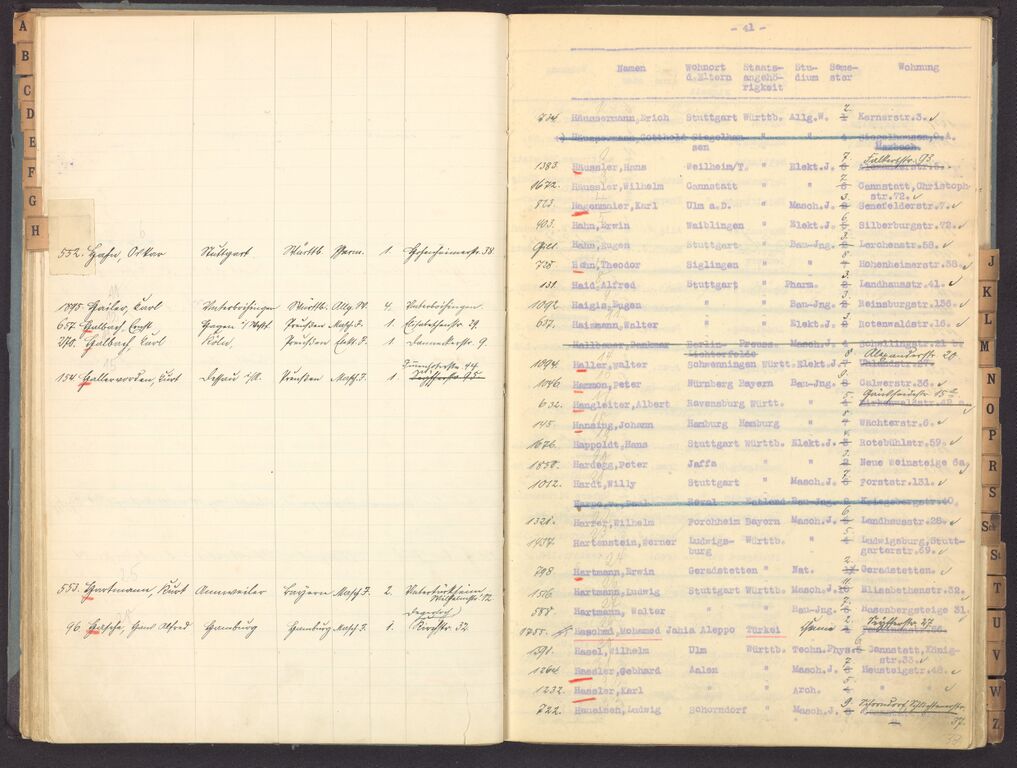 A
B
C
D
E
F
G
H
552. Hahn, Oskar Stuttgart Württb. Pharm. 1. Hohenheimerstr. 58.
1895. Hailer, Karl Unterboihingen Württb. Allg. W. 4. Unterboihingen.
657. Halbach, Ernst Hagen i/Westf. Preußen Masch. J. 1. Elisabethenstr. 29.
270. Halbach, Karl Köln, Preußen Elekt. J. 1. Danneckerstr. 9.
154. Hallervorden, Kurt Dessau i/A. Preußen Masch. J. 1
553. Hartmann, Kurt Annweiler Bayern Masch. J. 2. Untertürkheim
Wilhelmstr. 12
Degerloch
96. Hasche, Hans Alfred Hamburg Hamburg Masch. J. 1. Kirchstr. 32
- 41 -
Namen Wohnort d.Eltern Staats-angehö-rigkeit Stu-dium Seme-ster Wohnung
2.
734. Häussermann, Erich Stuttgart Württb. Allg.W. 1 Kernerstr.3.
Häussermann, Gotthold Siegelhau-sen " " 4 Siegelhausen, O.A.
Marbach.
7. Falkertstr. 93.
1383. Häussler, Hans Weilheim/T. " Elekt.J.
1672. Häussler, Wilhelm Cannstatt " " Cannstatt, Christoph-
str.72.
823. Hagenmaier, Karl Ulm a.D. " Masch.J. Senefelderstr.7.
403. Hahn, Erwin Waiblingen " Elekt.J. Silberburgstr.72.
Hahn, Eugen Stuttgart " Bau-Jng. Lerchenstr.58.
728. Hahn, Theodor Siglingen " " Hohenheimerstr.38
131. Haid, Alfred Stuttgart " Pharm. Landhausstr.41.
1092. Haigis, Eugen " " Bau-Jng. Reinsburgstr.136
637. Haizmann, Walter " " Elekt.J. Rotenwaldstr.16.
Hallbauer, Dankmar Berlin-Lichterfelde Preuss. Masch.J. 4 Schellingstr.21 b.
8 Alexanderstr 20
1894. Haller, Walter Schwenningen Württ. Elekt.J.
1046. Hammon, Peter Nürnberg Bayern Bau-Jng. Calwerstr.36.
632. Hangleiter, Albert Ravensburg Württ. "
145. Hansing, Johann Hamburg Hamburg " Wächterstr.6.
1676. Happoldt, Hans Stuttgart Württb. Elekt.J. Rotebühlstr.59.
1850. Hardegg, Peter Jaffa " " Neue Weinsteige 6a
1012. Hardt, Willy Stuttgart " Masch.J. Forststr.131.
Harpe, v., Paul Reval Estland Bau-Jng. 2 Kriegsbergstr.40.
1321. Harrer, Wilhelm Forchheim Bayern Masch.J. 6 Landhausstr.28.
1434. Hartenstein, Werner Ludwigs-burg Württb. " Ludwigsburg, Stutt-
garterstr.69.
798. Hartmann, Erwin Geradstetten " Nat. 2. Geradstetten.
1516. Hartmann, Ludwig Stuttgart Württb. Masch.J. 11. Elisabethenstr.32.
588. Hartmann, Walter " " Bau-Jng. 7 Hasenbergsteige 31.
1755. Haschad, Mohamed Jahia Aleppo Türkei Chemie 2
1391. Hasel, Wilhelm Ulm Württb. Techn.Phys. 6 Cannstatt, König-
str.33.
1264. Hassler, Gebhard Aalen " Masch.J. 7 Heusteigstr.48.
1232. Hassler, Karl " " Arch. 5 " "
722. Haueisen, Ludwig Schorndorf " Masch.J. 9 Schorndorf, Schlichtenerstr.
37.
J
K
L
M
N
O
P
R
S
Sch
St
T
U
V
W
Z